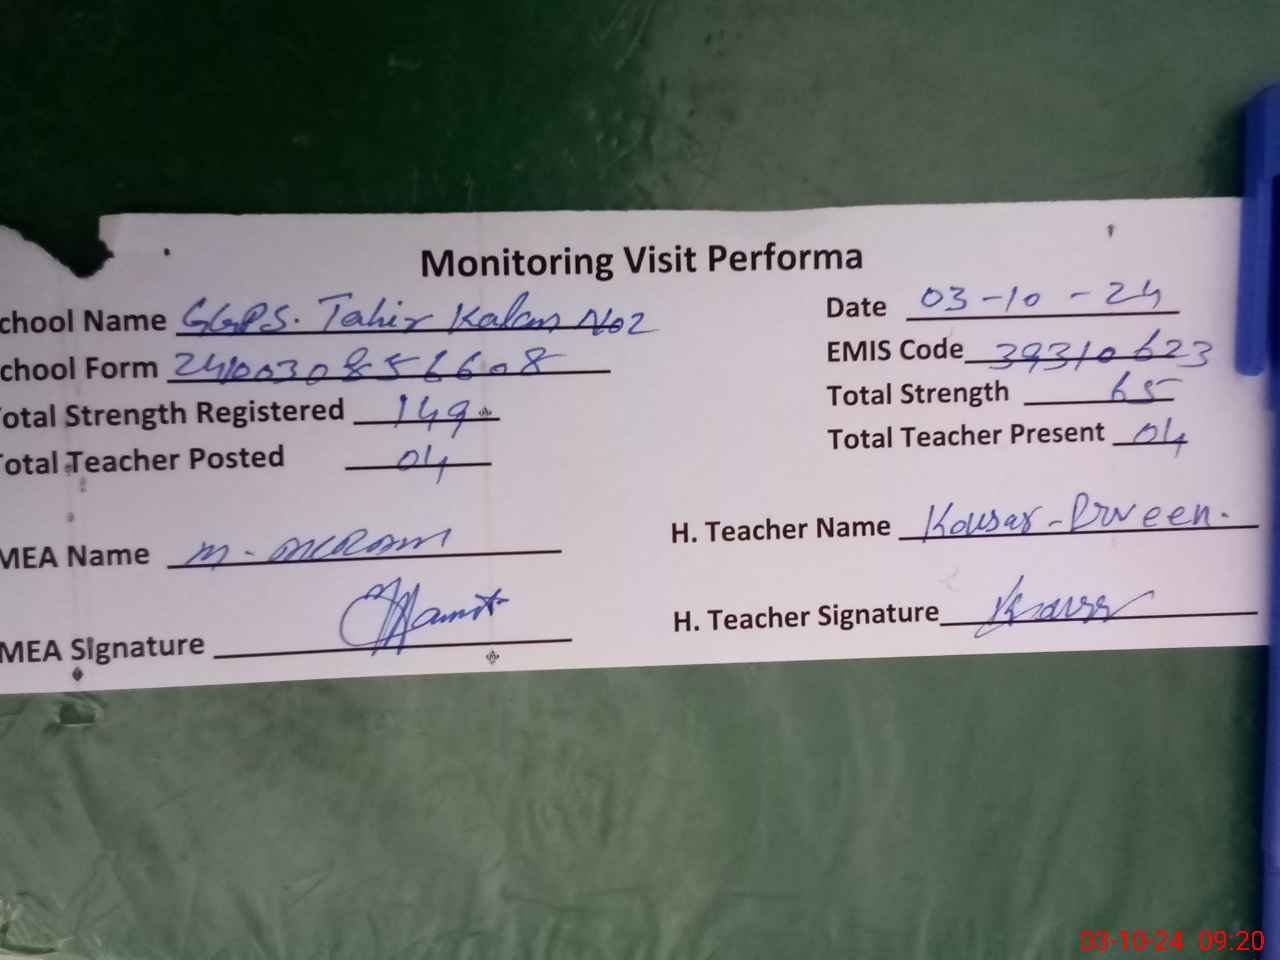 Monitoring Visit Performa
chool Name GGPS. Tahir Kalan No2 Date 03-10-24
chool Form 2410030856608 EMIS Code 39310623
otal Strength Registered 149 Total Strength 65
otal Teacher Posted 04 Total Teacher Present 04
MEA Name M. AKRAM H. Teacher Name Kousar-Prveen.
MEA Signature H. Teacher Signature
03-10-24 09:20